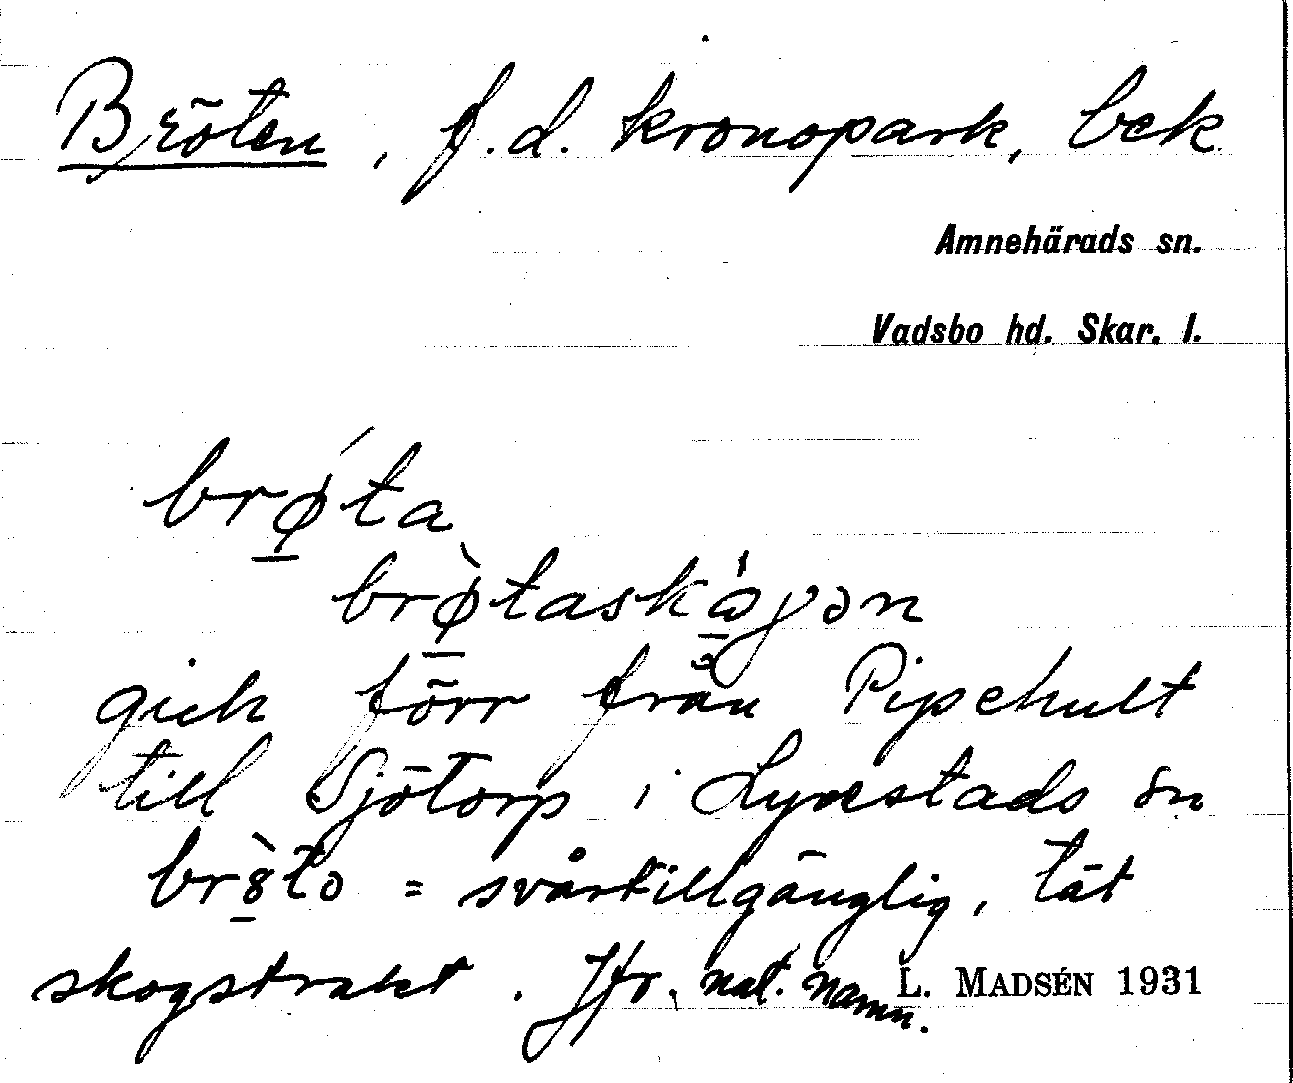 Bröten, f.d. kronopark, bek
Amnehärads sn.
Vadsbo hd. Skar. l.
brǿta
brø̀taskógən
gick förr från Pipehult
till Sjötorp i Lyrestads sn
brö̀tə = svårtillgänglig, tät
skogstrakt. Jfr. nat. namn.
L. MADSÉN 1931